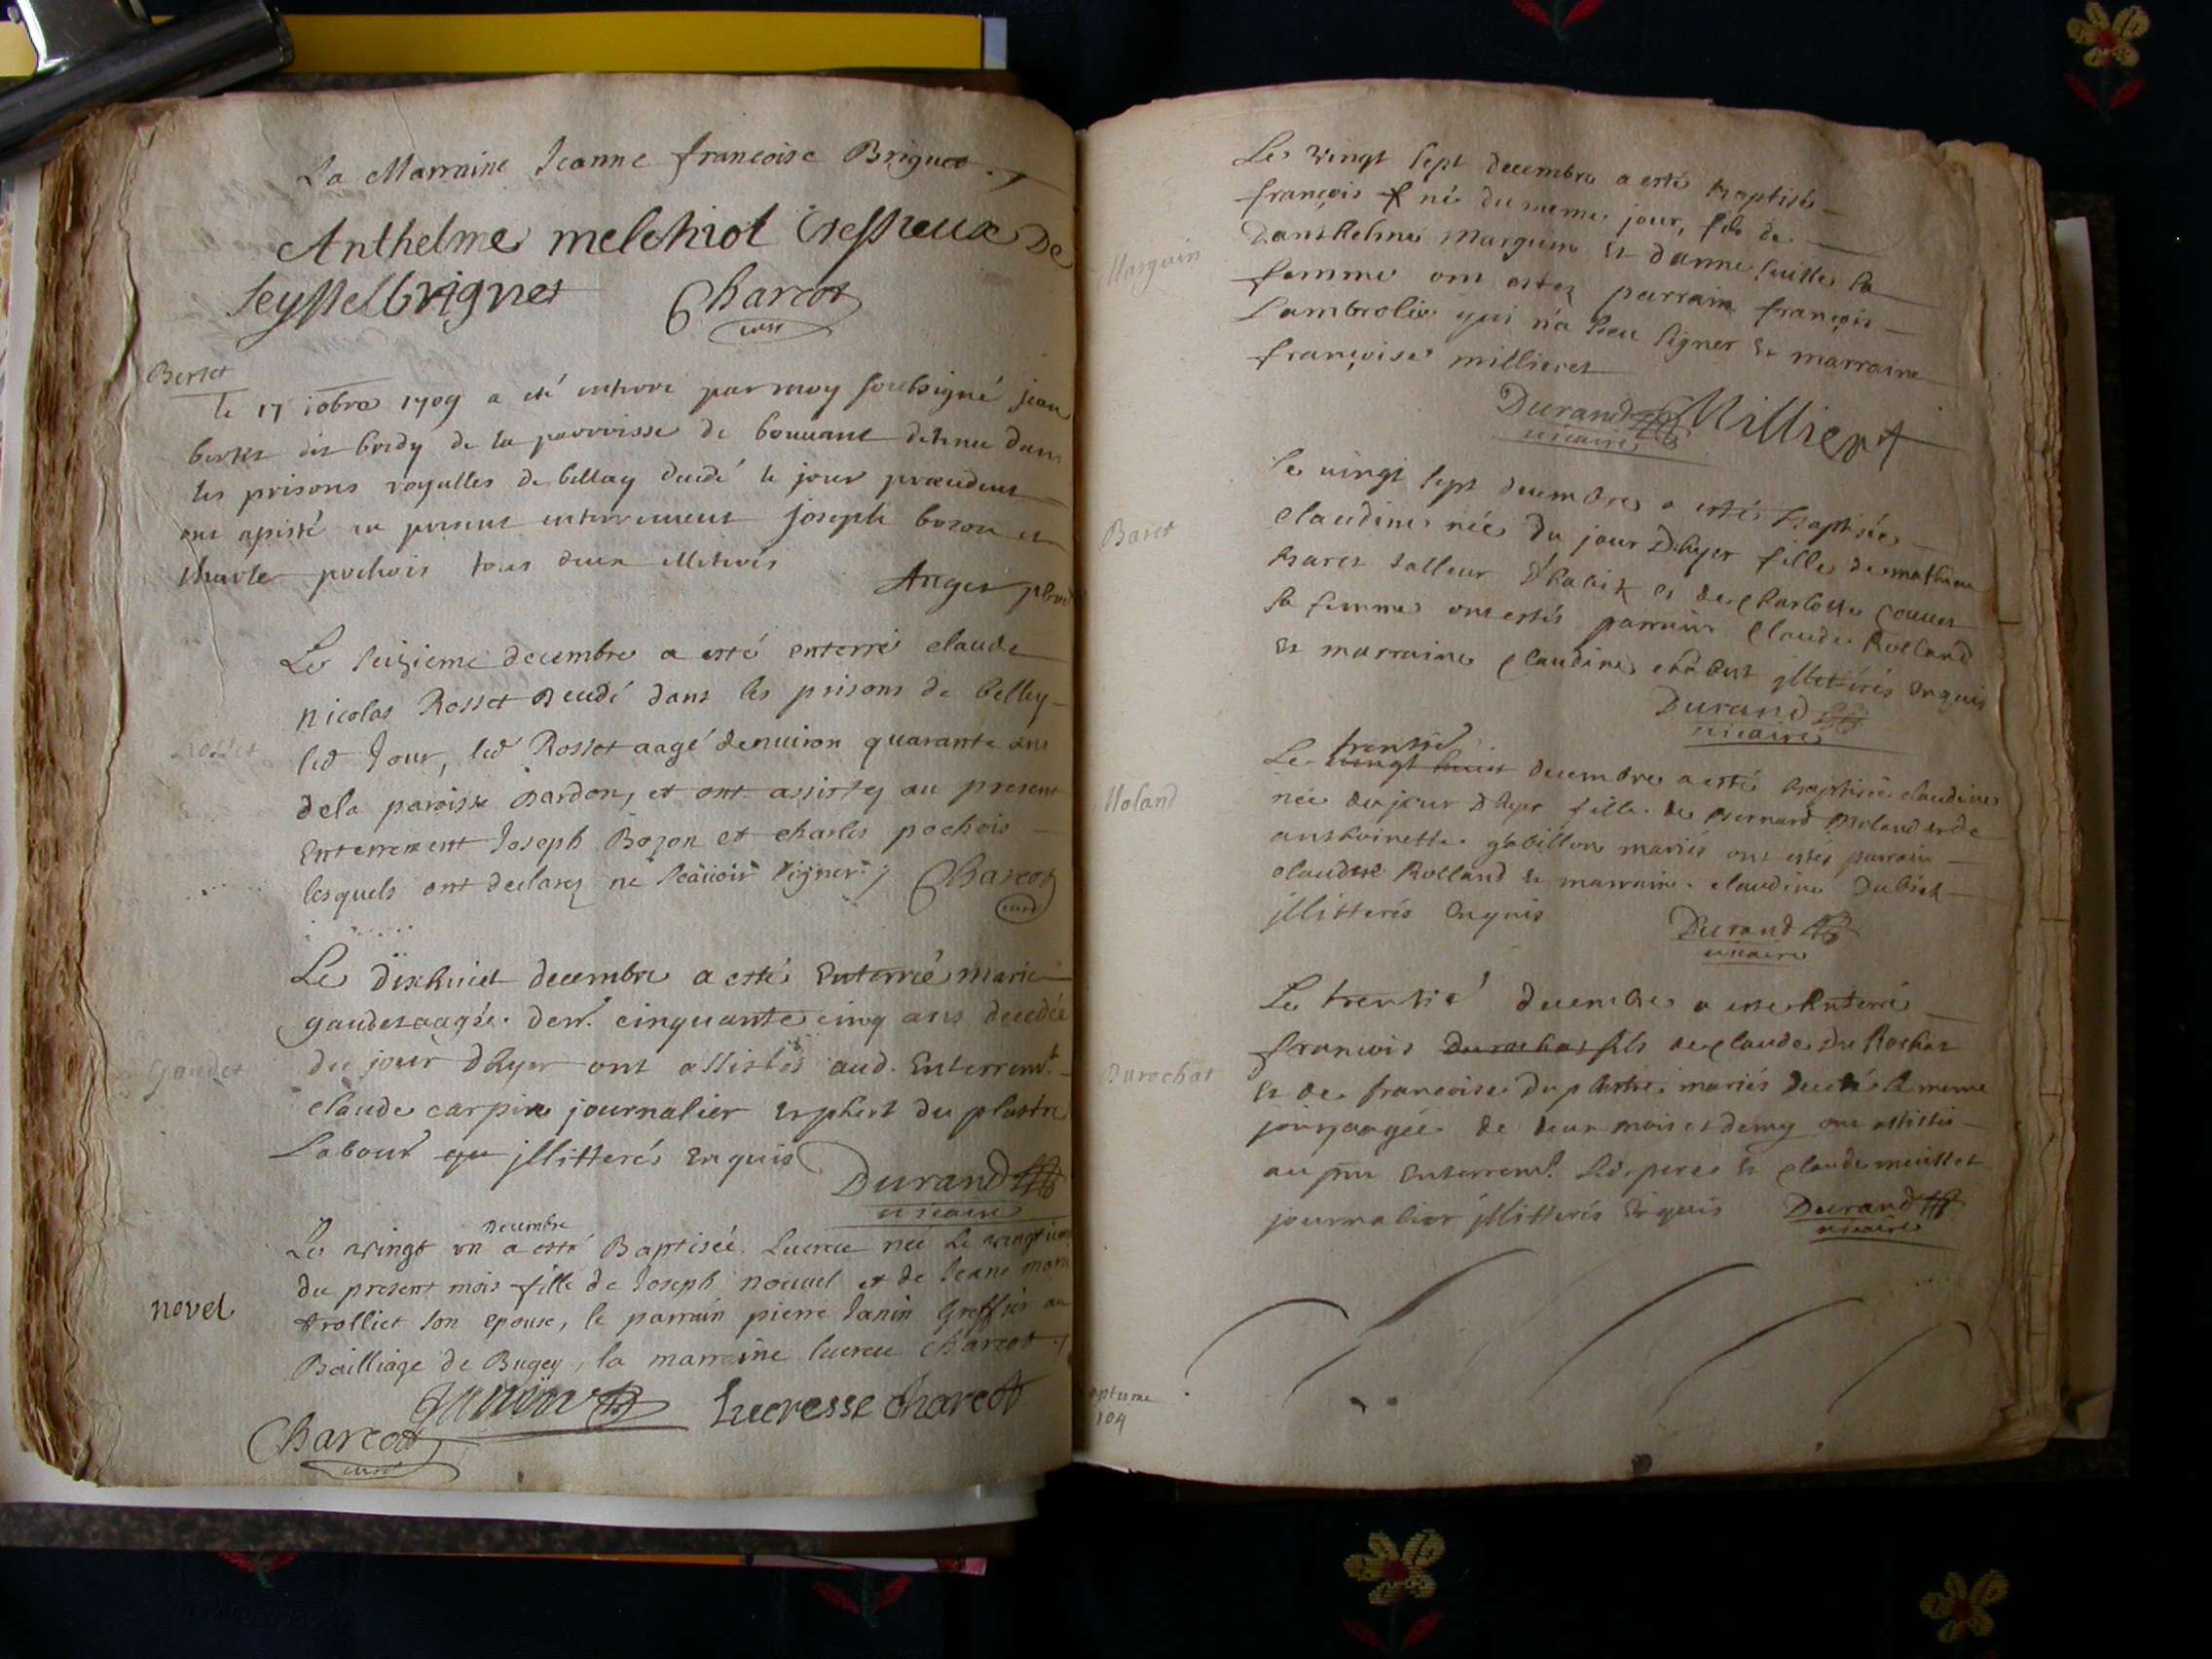 La Marraine Jeanne francoise Briguet
Anthelme melchiol De
Seyssel brignet Charcot
curé
Berset
le 17 10bre 1709 a eté enterré par moy soubsigné jean
berset dit bordy de la parroisse de detenu dans
les prisons royalles de bellay decedé le jour precedent
ont apisté au present enterrement joseph bozon et
charle pochois tous deux illiterés
Anger
Le seizieme decembre a esté enterré claude
nicolas Rosset decedé dans les prisons de belley
led Jour, led Rosset aagé denuiron quarante ans
Rosset
dela paroisse Dardon, et ont assistez au present
Enterrement Joseph Bozon et charles pochois
lesquels ont declarez ne scauoir signer Charcot
curé
Le dixhuict decembre a esté Enterrée marie
gaudet aagée denr. cinquante cinq ans decedée
Gaudet
du jour dhyer ont assistés aud. Enterremt.
claude carpin journalier et phert du plastre
Labour illitterés Enquis
Durand
uicaire
decembre
Le vingt un a esté Baptisée Lucrece née Le
du present mois fille de Joseph nouuel et de Jeane marie
novel
trolliet son epouse, le parrain pierre Janin Greffier au
Bailliage de Bugey, la marraine lucrece Charcot
Janin Lucresse charcot
Charcot
curé
Le vingt sept decembre a esté baptisé
françois né du meme jour, fils de
Danthelme Marguin et danne sa
Marguin
femme ont estez parrain françois
Lambrolie qui n'a sceu signer et marraine
françoise millieret
Durand Millieret
uicaire
Le uingt sept decembre a esté baptisée
claudine née du jour D'hyer fille de mathieu
Baret
baret talleur d'habit et de charlotte
sa femme ont estés parrain Claude Rolland
et marraine claudine illiterés Enquis
Durand
uicaire
trentie
Le vingt huit decembre a esté baptisée claudine
Moland
née du jour d'hyer fille de bernard Moland et de
anthoinette gobillon mariés ont estés parrain
claude Rolland et marraine claudine Dubiet
jllitterés Enquis
Durand
uicaire
Le trentie decembre a esté Enterré
francois Durochat fils de claude Du Rochat
Durochat
et de francoise du plastre mariés decedé le meme
jour, aagée de deux mois et demy ont assistés
au pnt Enterremt. led. pere et claude
journalier jllitterés Enquis Durand
uicaire